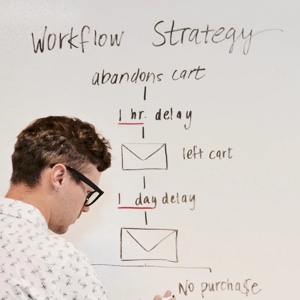 Workflow Strategy
abandons cart
1 hr. delay
left cart
1 day delay
No purchase